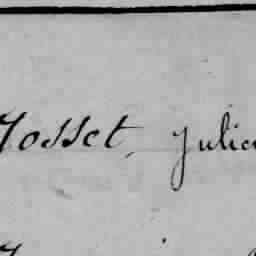 Josset, Julie